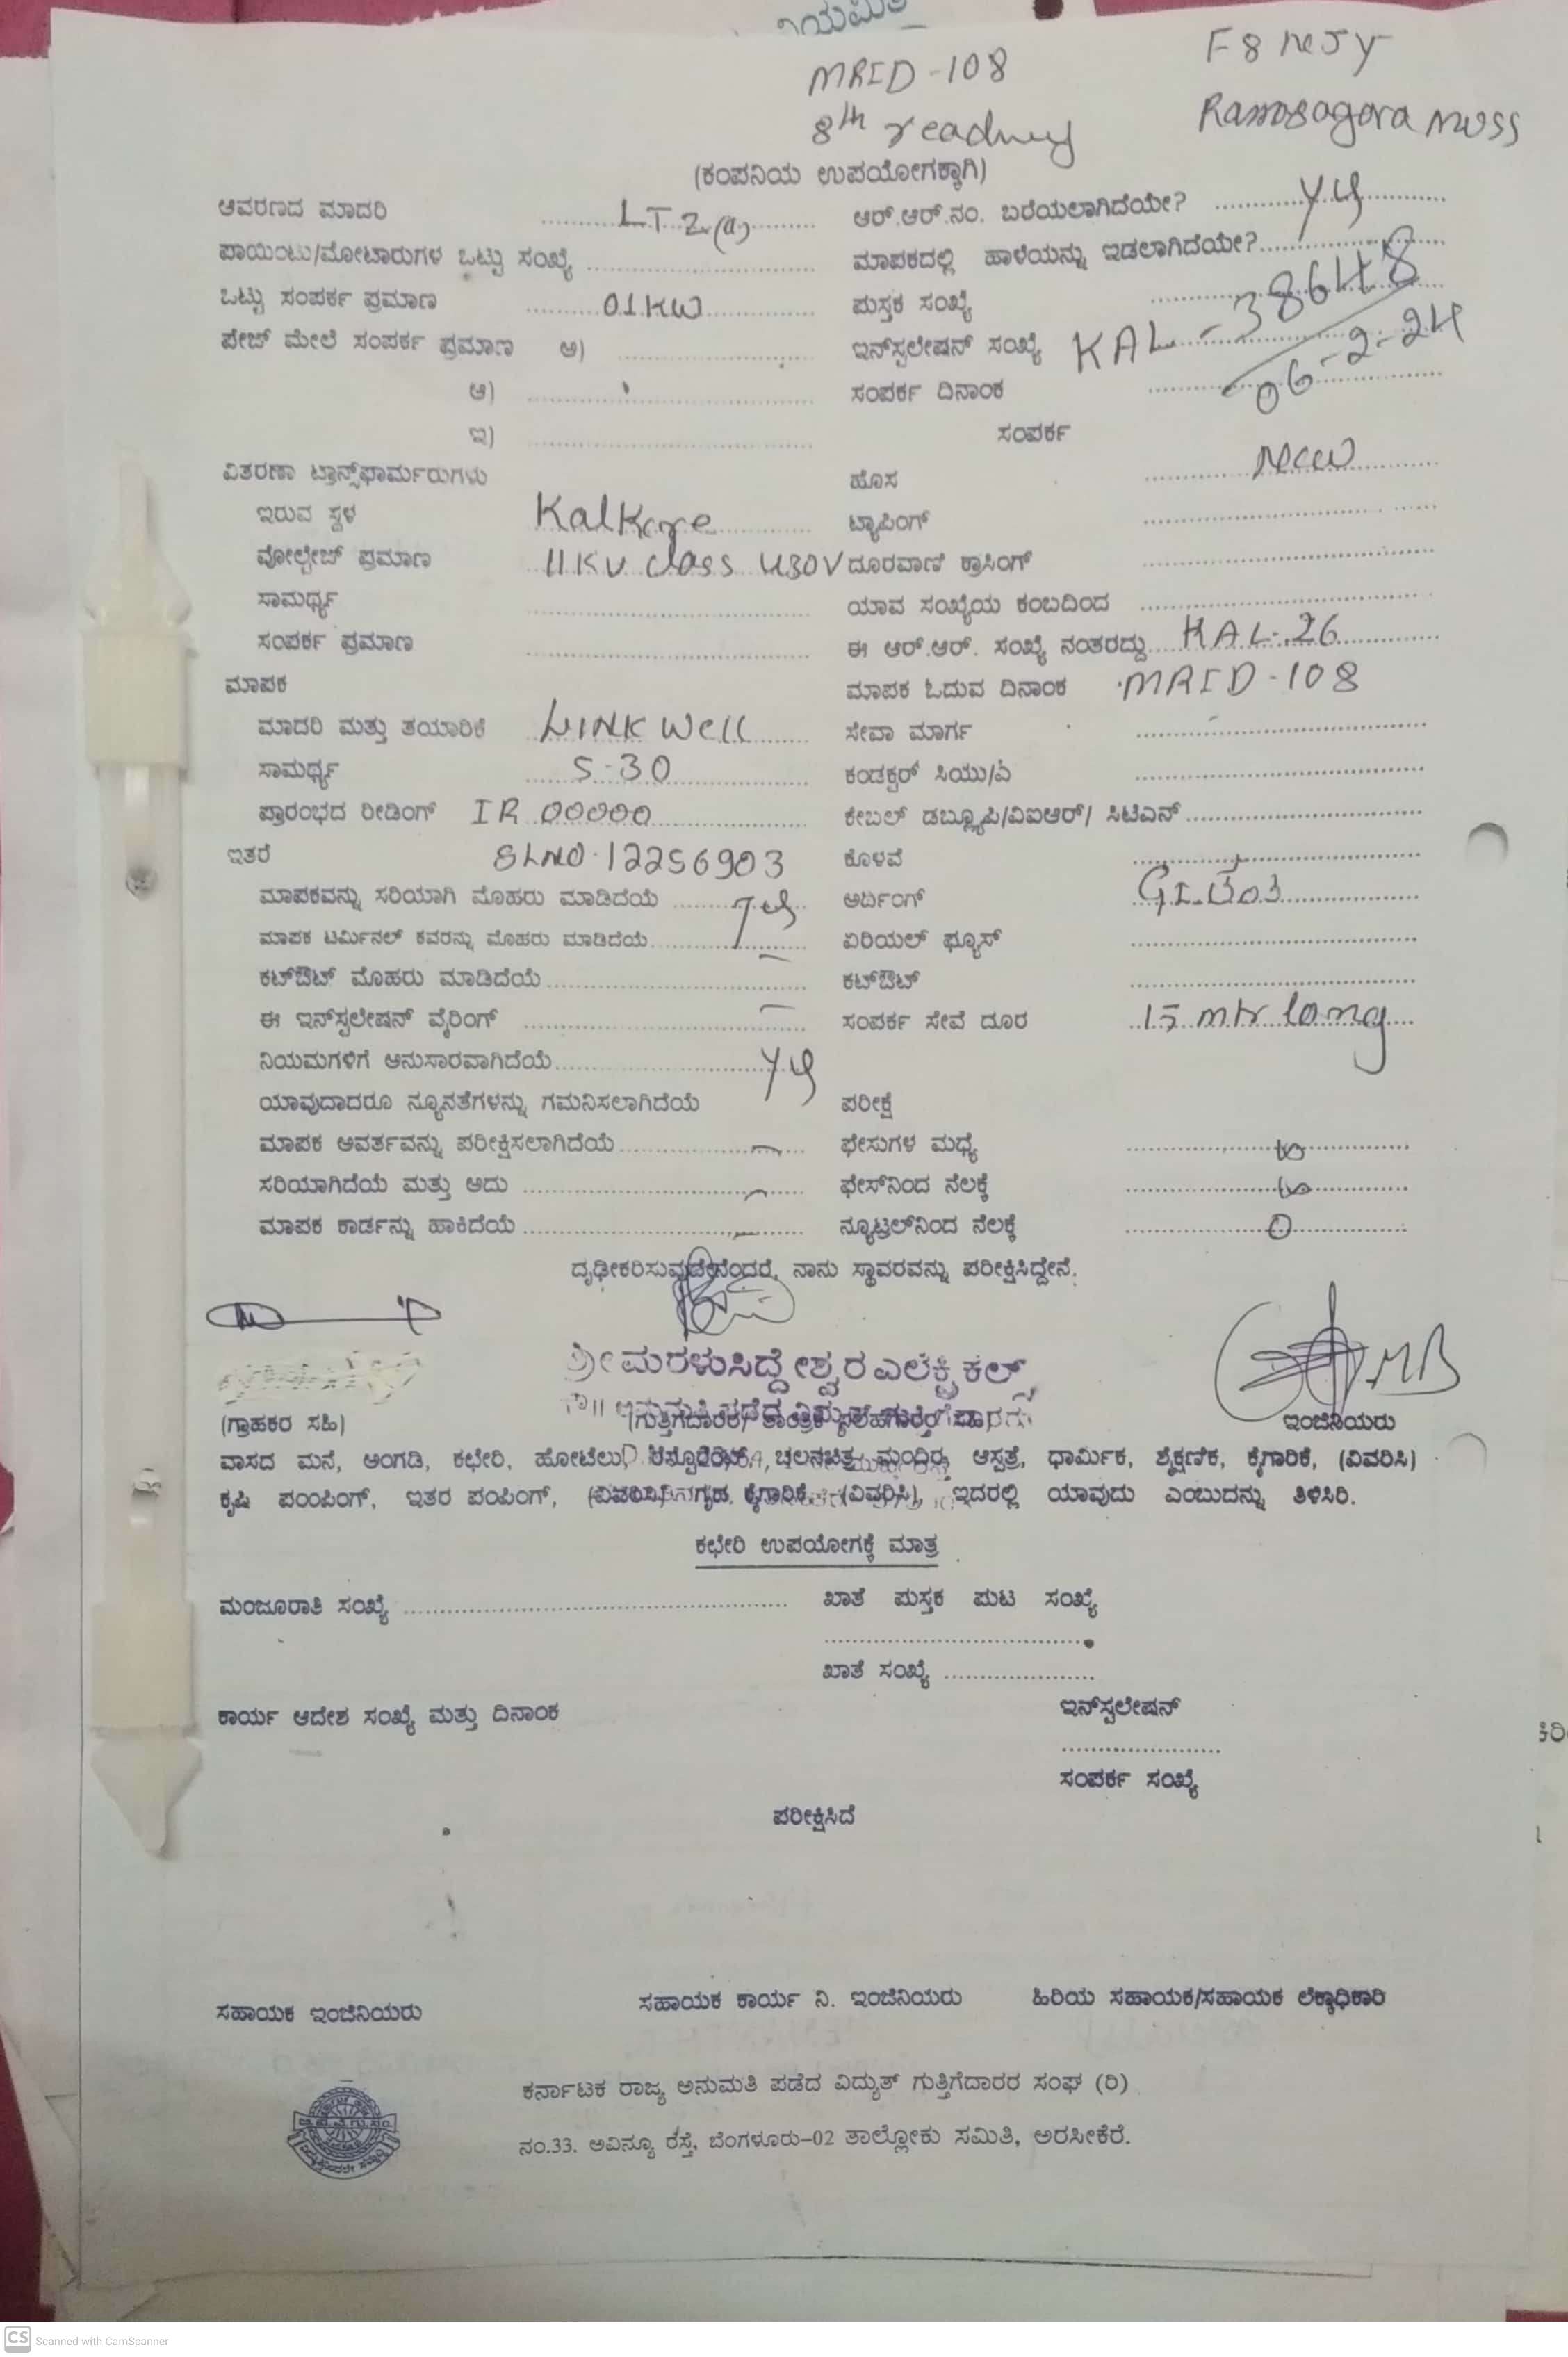 MRID-108
8th reading
(ಕಂಪನಿಯ ಉಪಯೋಗಕ್ಕಾಗಿ)
ಆವರಣದ ಮಾದರಿ LT 2(a) ಆರ್.ಆರ್.ನಂ. ಬರೆಯಲಾಗಿದೆಯೇ?
ಪಾಯಿಂಟು/ಮೋಟಾರುಗಳ ಒಟ್ಟು ಸಂಖ್ಯೆ ಮಾಪಕದಲ್ಲಿ ಹಾಳೆಯನ್ನು ಇಡಲಾಗಿದೆಯೇ?
ಒಟ್ಟು ಸಂಪರ್ಕ ಪ್ರಮಾಣ 01KW ಪುಸ್ತಕ ಸಂಖ್ಯೆ
ಪೇಜ್ ಮೇಲೆ ಸಂಪರ್ಕ ಪ್ರಮಾಣ ಅ) ಇನ್‌ಸ್ಟಲೇಷನ್ ಸಂಖ್ಯೆ KAL-38648
ಆ) ಸಂಪರ್ಕ ದಿನಾಂಕ 06-2-24
ಇ) ಸಂಪರ್ಕ
ವಿತರಣಾ ಟ್ರಾನ್ಸ್‌ಫಾರ್ಮರುಗಳು ಹೊಸ New
ಇರುವ ಸ್ಥಳ Kalkere ಟ್ಯಾಪಿಂಗ್
ವೋಲ್ಟೇಜ್ ಪ್ರಮಾಣ 11KV class 430V ದೂರವಾಣಿ ಕ್ರಾಸಿಂಗ್
ಸಾಮರ್ಥ್ಯ ಯಾವ ಸಂಖ್ಯೆಯ ಕಂಬದಿಂದ
ಸಂಪರ್ಕ ಪ್ರಮಾಣ ಈ ಆರ್.ಆರ್. ಸಂಖ್ಯೆ ನಂತರದ್ದು KAL-26
ಮಾಪಕ ಮಾಪಕ ಓದುವ ದಿನಾಂಕ MRID-108
ಮಾದರಿ ಮತ್ತು ತಯಾರಿಕೆ LINK Well ಸೇವಾ ಮಾರ್ಗ
ಸಾಮರ್ಥ್ಯ 5-30 ಕಂಡಕ್ಟರ್ ಸಿಯು/ಎ
ಪ್ರಾರಂಭದ ರೀಡಿಂಗ್ IR 00000 ಕೇಬಲ್ ಡಬ್ಲ್ಯೂಪಿ/ವಿಐಆರ್/ ಸಿಟಿಎಸ್
ಇತರೆ SLNO-12256903 ಕೊಳವೆ
ಮಾಪಕವನ್ನು ಸರಿಯಾಗಿ ಮೊಹರು ಮಾಡಿದೆಯೆ ಅರ್ದಿಂಗ್
ಮಾಪಕ ಟರ್ಮಿನಲ್ ಕವರನ್ನು ಮೊಹರು ಮಾಡಿದೆಯೆ ಏರಿಯಲ್ ಫ್ಯೂಸ್
ಕಟ್‌ಔಟ್ ಮೊಹರು ಮಾಡಿದೆಯೆ ಕಟ್‌ಔಟ್
ಈ ಇನ್‌ಸ್ಟಲೇಷನ್ ವೈರಿಂಗ್ ಸಂಪರ್ಕ ಸೇವೆ ದೂರ 15 mtr long
ನಿಯಮಗಳಿಗೆ ಅನುಸಾರವಾಗಿದೆಯೆ
ಯಾವುದಾದರೂ ನ್ಯೂನತೆಗಳನ್ನು ಗಮನಿಸಲಾಗಿದೆಯೆ ಪರೀಕ್ಷೆ
ಮಾಪಕ ಆವರ್ತವನ್ನು ಪರೀಕ್ಷಿಸಲಾಗಿದೆಯೆ ಫೇಸುಗಳ ಮಧ್ಯೆ
ಸರಿಯಾಗಿದೆಯೆ ಮತ್ತು ಅದು ಫೇಸ್‌ನಿಂದ ನೆಲಕ್ಕೆ
ಮಾಪಕ ಕಾರ್ಡನ್ನು ಹಾಕಿದೆಯೆ ನ್ಯೂಟ್ರಲ್‌ನಿಂದ ನೆಲಕ್ಕೆ 0
ದೃಢೀಕರಿಸುವುದೇನೆಂದರೆ, ನಾನು ಸ್ಥಾವರವನ್ನು ಪರೀಕ್ಷಿಸಿದ್ದೇನೆ.
ಶ್ರೀ ಮರಳುಸಿದ್ದೇಶ್ವರ ಎಲೆಕ್ಟ್ರಿಕಲ್ಸ್
(ಗ್ರಾಹಕರ ಸಹಿ) ಇಂಜಿನಿಯರು
ವಾಸದ ಮನೆ, ಅಂಗಡಿ, ಕಛೇರಿ, ಹೋಟೆಲು, ಚಲನಚಿತ್ರ ಮಂದಿರ, ಆಸ್ಪತ್ರೆ, ಧಾರ್ಮಿಕ, ಶೈಕ್ಷಣಿಕ, ಕೈಗಾರಿಕೆ, (ವಿವರಿಸಿ)
ಕೃಷಿ ಪಂಂಪಿಂಗ್, ಇತರ ಪಂಪಿಂಗ್, (ವಿವರಿಸಿ) ಗೃಹ ಕೈಗಾರಿಕೆ, (ವಿವರಿಸಿ), ಇದರಲ್ಲಿ ಯಾವುದು ಎಂಬುದನ್ನು ತಿಳಿಸಿರಿ.
ಕಛೇರಿ ಉಪಯೋಗಕ್ಕೆ ಮಾತ್ರ
ಮಂಜೂರಾತಿ ಸಂಖ್ಯೆ ಖಾತೆ ಪುಸ್ತಕ ಪುಟ ಸಂಖ್ಯೆ
ಖಾತೆ ಸಂಖ್ಯೆ
ಕಾರ್ಯ ಆದೇಶ ಸಂಖ್ಯೆ ಮತ್ತು ದಿನಾಂಕ ಇನ್‌ಸ್ಟಲೇಷನ್
ಸಂಪರ್ಕ ಸಂಖ್ಯೆ
ಪರೀಕ್ಷಿಸಿದೆ
ಸಹಾಯಕ ಇಂಜಿನಿಯರು ಸಹಾಯಕ ಕಾರ್ಯ ನಿ. ಇಂಜಿನಿಯರು ಹಿರಿಯ ಸಹಾಯಕ/ಸಹಾಯಕ ಲೆಕ್ಕಾಧಿಕಾರಿ
ಕರ್ನಾಟಕ ರಾಜ್ಯ ಅನುಮತಿ ಪಡೆದ ವಿದ್ಯುತ್ ಗುತ್ತಿಗೆದಾರರ ಸಂಘ (ರಿ)
ನಂ.33. ಅವಿನ್ಯೂ ರಸ್ತೆ, ಬೆಂಗಳೂರು-02 ತಾಲ್ಲೋಕು ಸಮಿತಿ, ಅರಸೀಕೆರೆ.
CS Scanned with CamScanner